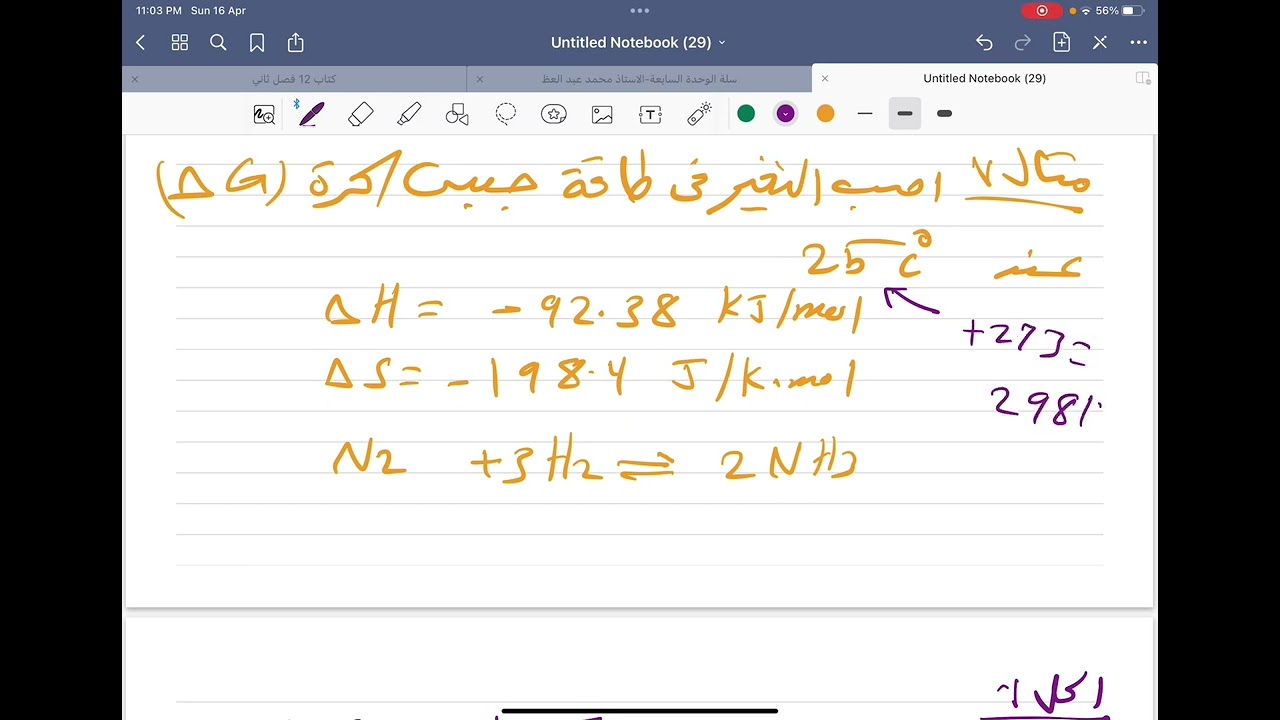 11:03 PM Sun 16 Apr
56%
Untitled Notebook (29)
كتاب 12 فصل ثاني
سلة الوحدة السابعة-الاستاذ محمد عبد العظ
Untitled Notebook (29)
مثال ٧ احسب التغير في طاقة جيبس الحرة (ΔG)
عند 25 c°
ΔH = -92.38 KJ/mol
+273=
ΔS = -198.4 J/K.mol
298K
N2 +3H2 ⇌ 2NH3
الحل :-